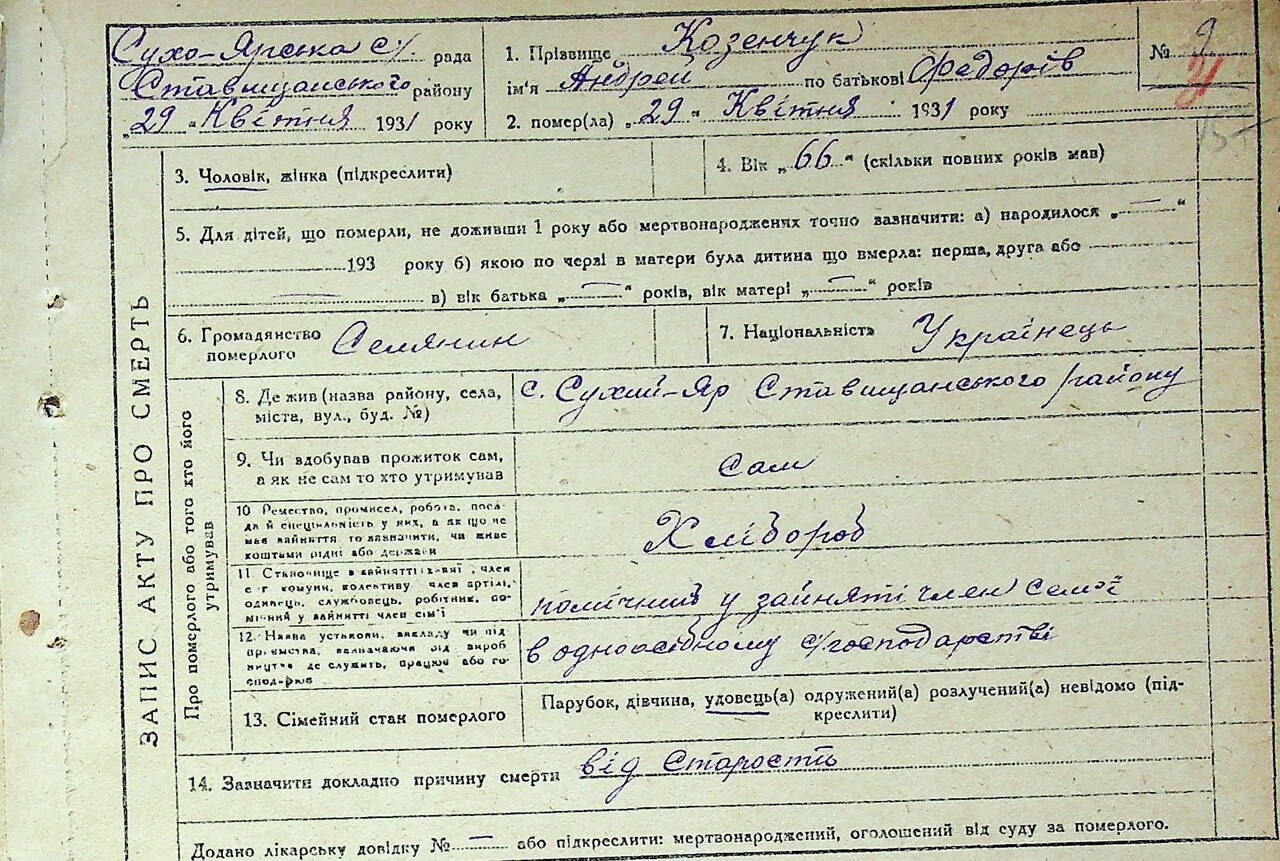 Сухо-Ярська с/. рада
Ставищанського району
„29“ Квітня 1931 року
1. Прізвище Козенчук
ім'я Андрей по батькові Федорів
2. помер(ла) „29“ Квітня 1931 року
№ 9
ЗАПИС АКТУ ПРО СМЕРТЬ
3. Чоловік, жінка (підкреслити)
4. Вік „66“ (скільки повних років мав)
5. Для дітей, що померли, не доживши 1 року або мертвонароджених точно зазначити: а) народилося „—“
193 року б) якою по черві в матери була дитина що вмерла: перша, друга або
— в) вік батька „—“ років, вік матері „—“ років
6. Громадянство
померлого Селянин
7. Національність Українець
Про померлого або того хто його
утримував
8. Де жив (назва району, села,
міста, вул., буд. №)
с. Сухий-Яр Ставищанського району
9. Чи вдобував прожиток сам,
а як не сам то хто утримував
сам
10 Ремество, промисел, робота, поса-
да й спеціальність у них, а як що не
мав вайняття то вазначити, чи живе
коштами рідні або держави
Хлібороб
11. Становище в вайнятті: член
с.-г. комуни, колективу член артілі,
одинець, службовець, робітник, по-
мічний у вайнятті член сім'ї
помічний у зайняті член Семьї
12. Назва установи, вакладу чи під-
приємства, вазначаючи рід вироб-
ництва де служить, працює або го-
сподарює
в одноосібному с/господарстві
13. Сімейний стан померлого
Парубок, дівчина, удовець(а) одружений(а) розлучений(а) невідомо (під-
креслити)
14. Зазначити докладно причину смерти від Старости
Додано лікарську довідку № — або підкреслити: мертвонароджений, оголошений від суду за померлого.